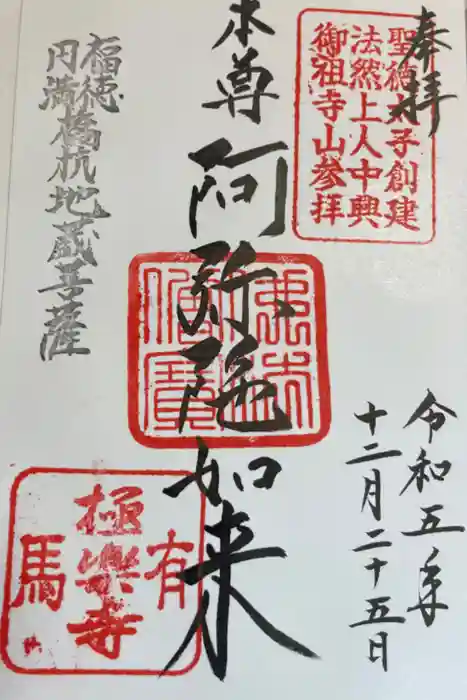 奉拝
聖徳太子創建
法然上人中興
御祖寺山参拝
本尊
阿弥陀如来
福徳
円満橋杭地蔵菩薩
令和五年
十二月二十五日
有馬
極樂寺